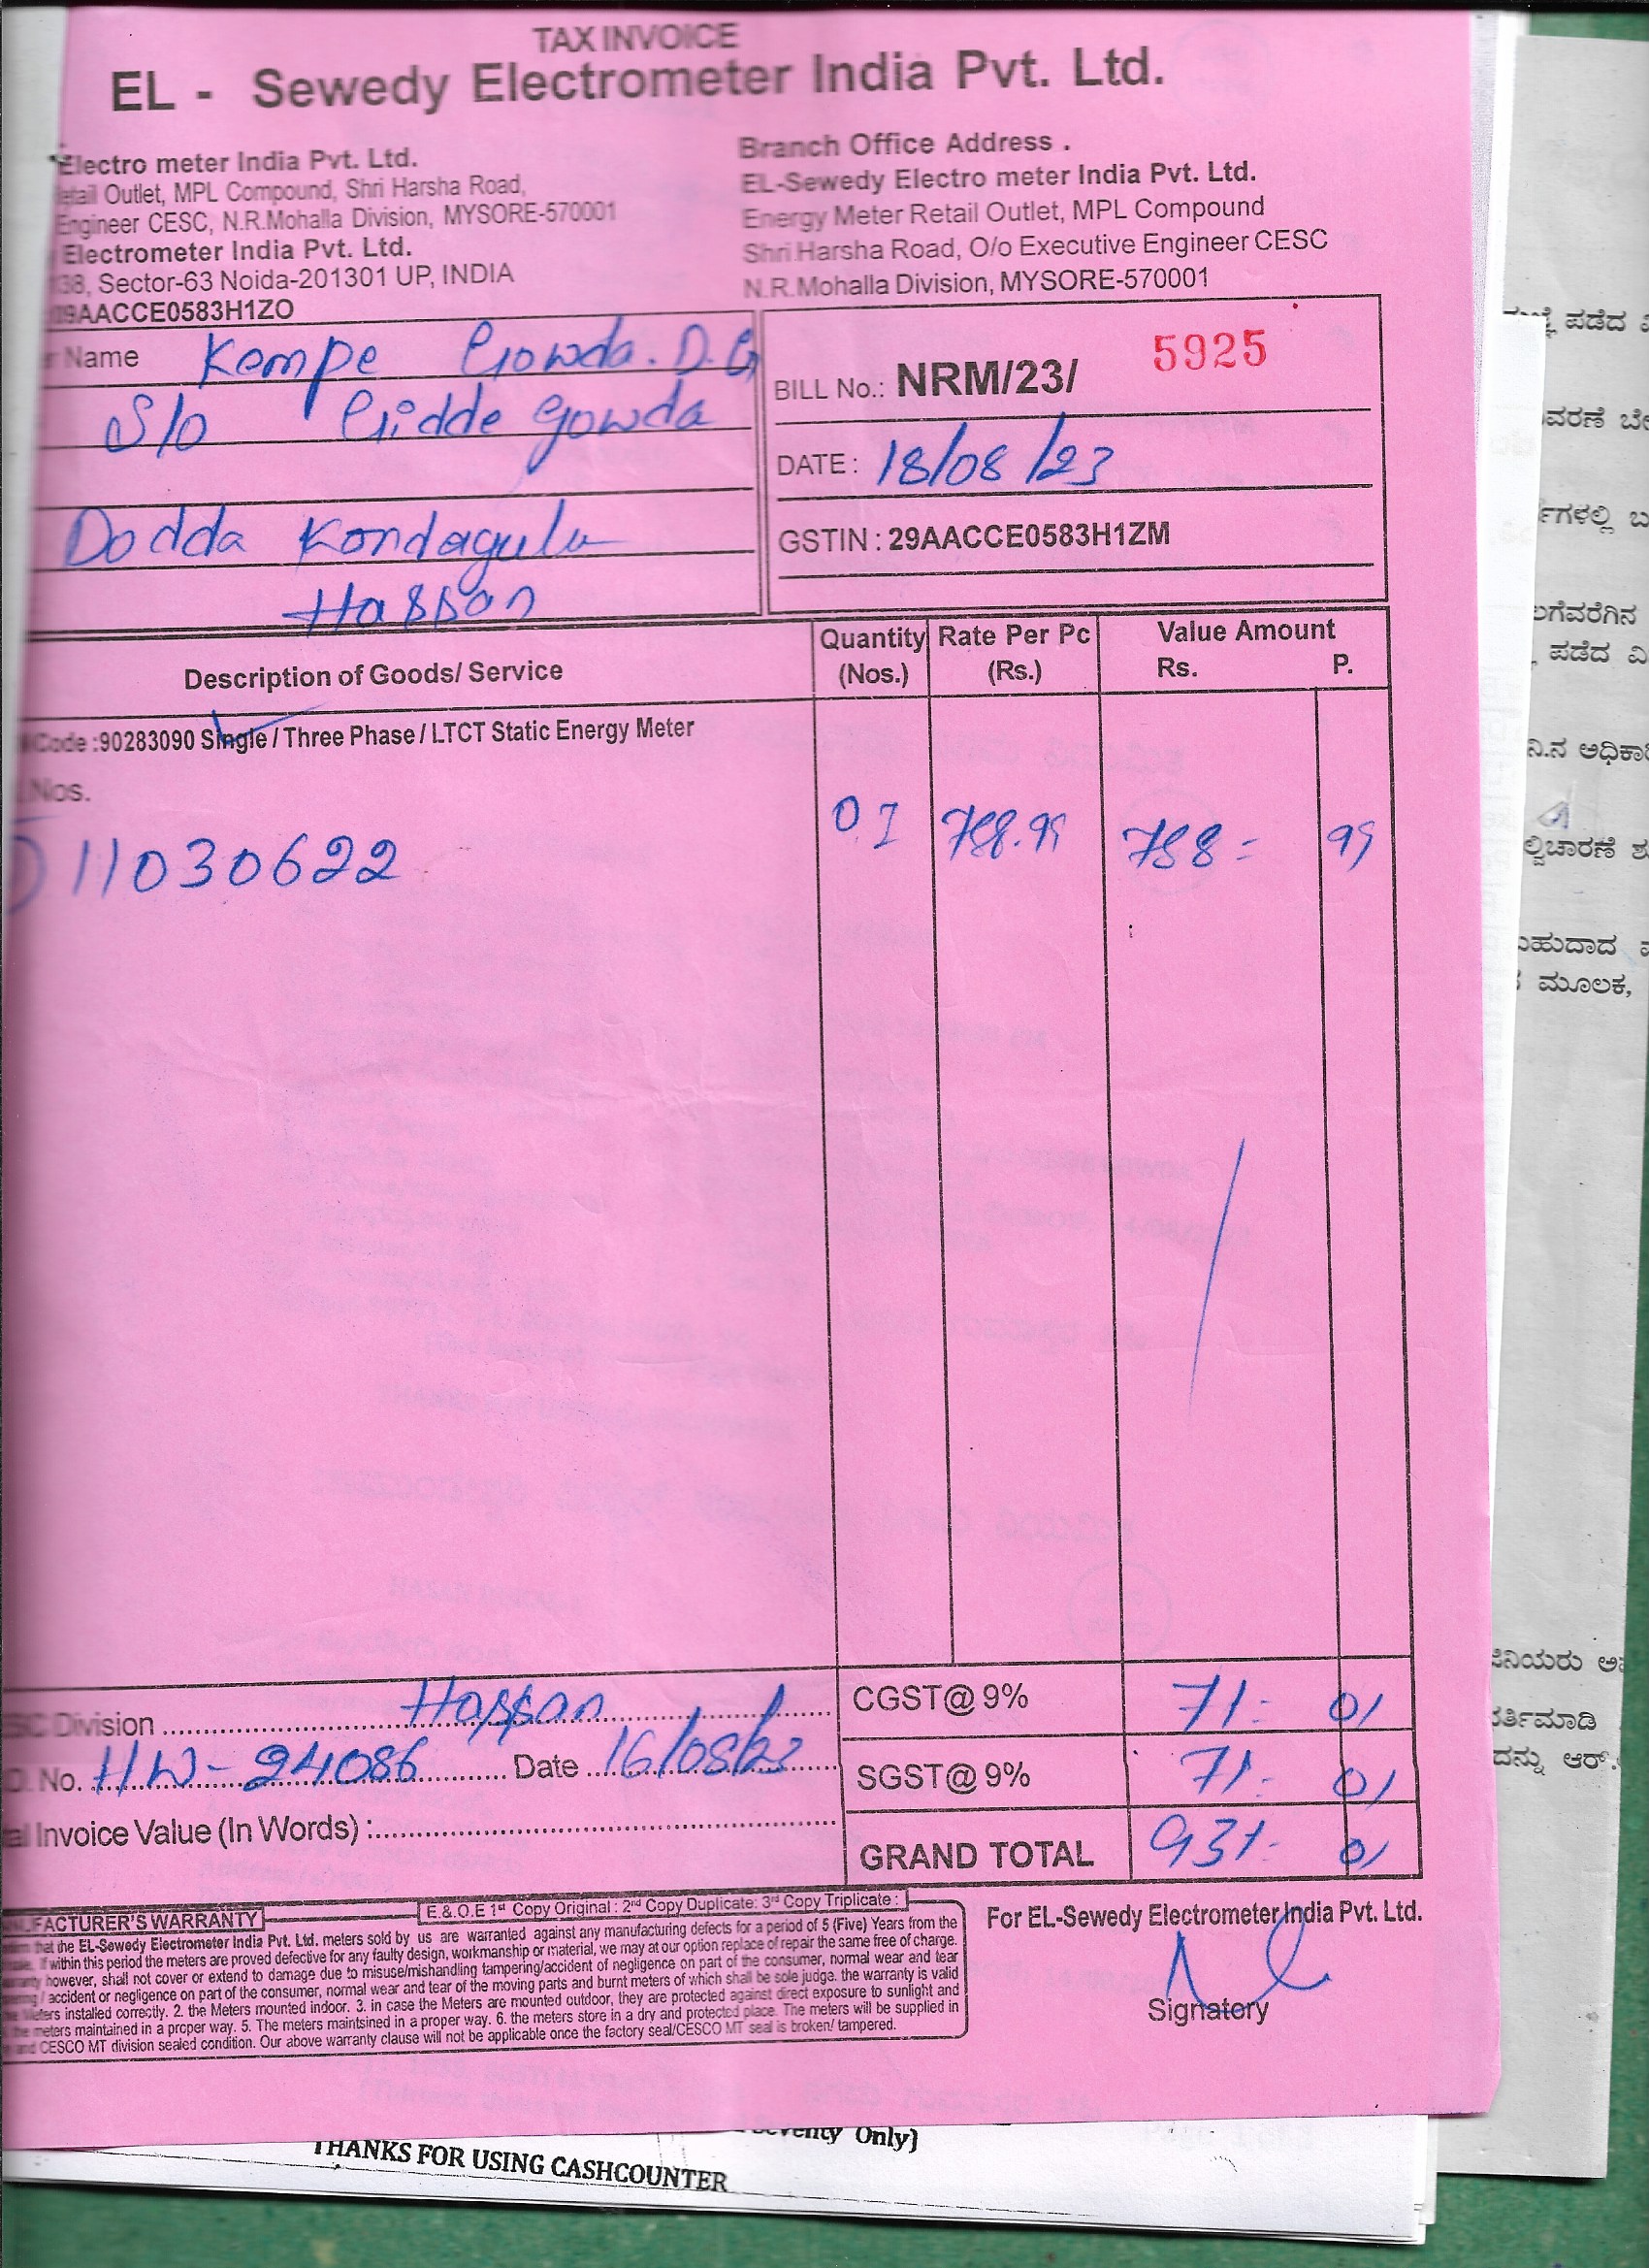 TAX INVOICE
EL - Sewedy Electrometer India Pvt. Ltd.
Electro meter India Pvt. Ltd.
etail Outlet, MPL Compound, Shri Harsha Road,
Engineer CESC, N.R.Mohalla Division, MYSORE-570001
Electrometer India Pvt. Ltd.
38, Sector-63 Noida-201301 UP, INDIA
9AACCE0583H1ZO
Branch Office Address .
EL-Sewedy Electro meter India Pvt. Ltd.
Energy Meter Retail Outlet, MPL Compound
Shri Harsha Road, O/o Executive Engineer CESC
N.R.Mohalla Division, MYSORE-570001
r Name Kempe Gowda. D.G
S/o Gidde gowda
Dodda Kondagula
Hassan
BILL No.: NRM/23/ 5925
DATE : 18/08/23
GSTIN : 29AACCE0583H1ZM
Description of Goods/ Service
Quantity (Nos.)
Rate Per Pc (Rs.)
Value Amount
Rs. P.
Code :90283090 Single / Three Phase / LTCT Static Energy Meter
Nos.
11030622 01 788.99 788= 99
Division Hassan
No. HW-24086 Date 16/08/23
al Invoice Value (In Words) :
CGST@ 9% 71- 01
SGST@ 9% 71- 01
GRAND TOTAL 931- 01
E.&.O.E 1st Copy Original : 2nd Copy Duplicate: 3rd Copy Triplicate :
UFACTURER'S WARRANTY
that the EL-Sewedy Electrometer India Pvt. Ltd. meters sold by us are warranted against any manufacturing defects for a period of 5 (Five) Years from the
If within this period the meters are proved defective for any faulty design, workmanship or material, we may at our option replace of repair the same free of charge.
however, shall not cover or extend to damage due to misuse/mishandling tampering/accident of negligence on part of the consumer, normal wear and tear
/ accident or negligence on part of the consumer, normal wear and tear of the moving parts and burnt meters of which shall be sole judge. the warranty is valid
Meters installed correctly. 2. the Meters mounted indoor. 3. in case the Meters are mounted outdoor, they are protected against direct exposure to sunlight and
the meters maintained in a proper way. 5. The meters maintsined in a proper way. 6. the meters store in a dry and protected place. The meters will be supplied in
and CESCO MT division sealed condition. Our above warranty clause will not be applicable once the factory seal/CESCO MT seal is broken/ tampered.
For EL-Sewedy Electrometer India Pvt. Ltd.
Signatory
Seventy Only)
THANKS FOR USING CASHCOUNTER
ಪಡೆದ
ವರಣೆ
ಪಡೆದ
ಮೂಲಕ,